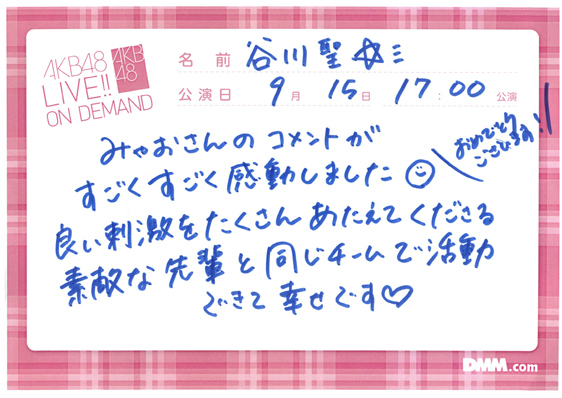 AKB48
LIVE!!
ON DEMAND
AKB
48
名 前 谷川聖☆ミ
公演日 9月 15日 17:00 公演
みゃおさんのコメントが
すごくすごく感動しました
おめでとう
ございます!!
良い刺激をたくさんあたえてくださる
素敵な先輩と同じチームで活動
できて幸せです♡
DMM.com